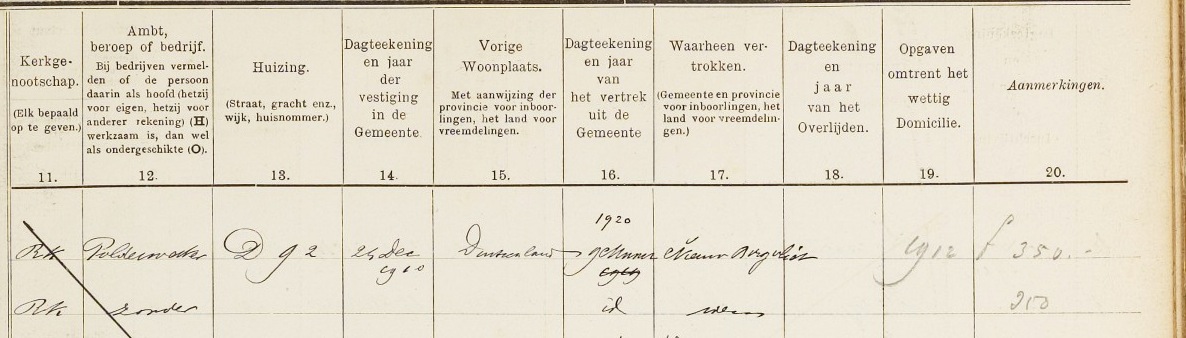 Kerkge-
nootschap.
(Elk bepaald
op te geven.)
11.
Ambt,
beroep of bedrijf.
Bij bedrijven vermel-
den of de persoon
daarin als hoofd (hetzij
voor eigen, hetzij voor
anderer rekening) (H)
werkzaam is, dan wel
als ondergeschikte (O).
12.
Huizing.
(Straat, gracht enz.,
wijk, huisnommer.)
13.
Dagteekening
en jaar
der
vestiging
in de
Gemeente.
14.
Vorige
Woonplaats.
Met aanwijzing der
provincie voor inboor-
lingen, het land voor
vreemdelingen.
15.
Dagteekening
en jaar
van
het vertrek
uit de
Gemeente
16.
Waarheen ver-
trokken.
(Gemeente en provincie
voor inboorlingen, het
land voor vreemdelin-
gen.)
17.
Dagteekening
en
jaar
van het
Overlijden.
18.
Opgaven
omtrent het
wettig
Domicilie.
19.
Aanmerkingen.
20.
1920
RK Polderwerker D 92 24 Dec Duitschland Nieuw 1912 f 350.-
1910 1919
RK zonder id idem 250